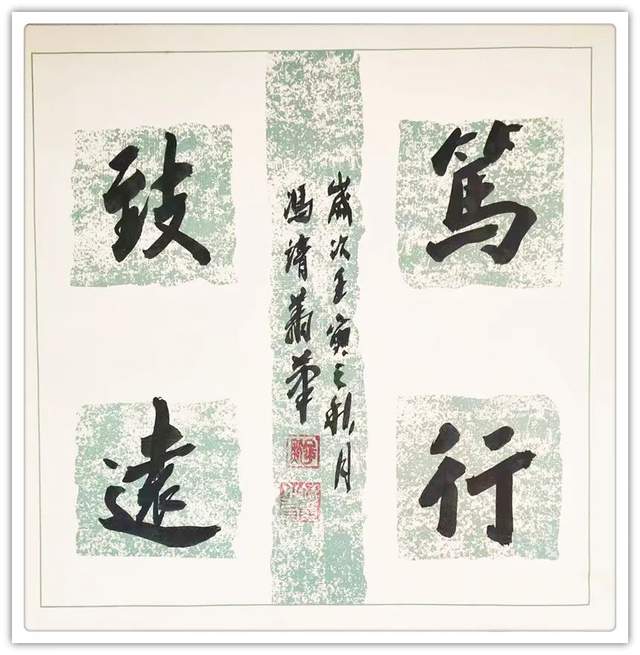 篤
行
致
遠
歲次壬寅之秋月
馮靖
筆